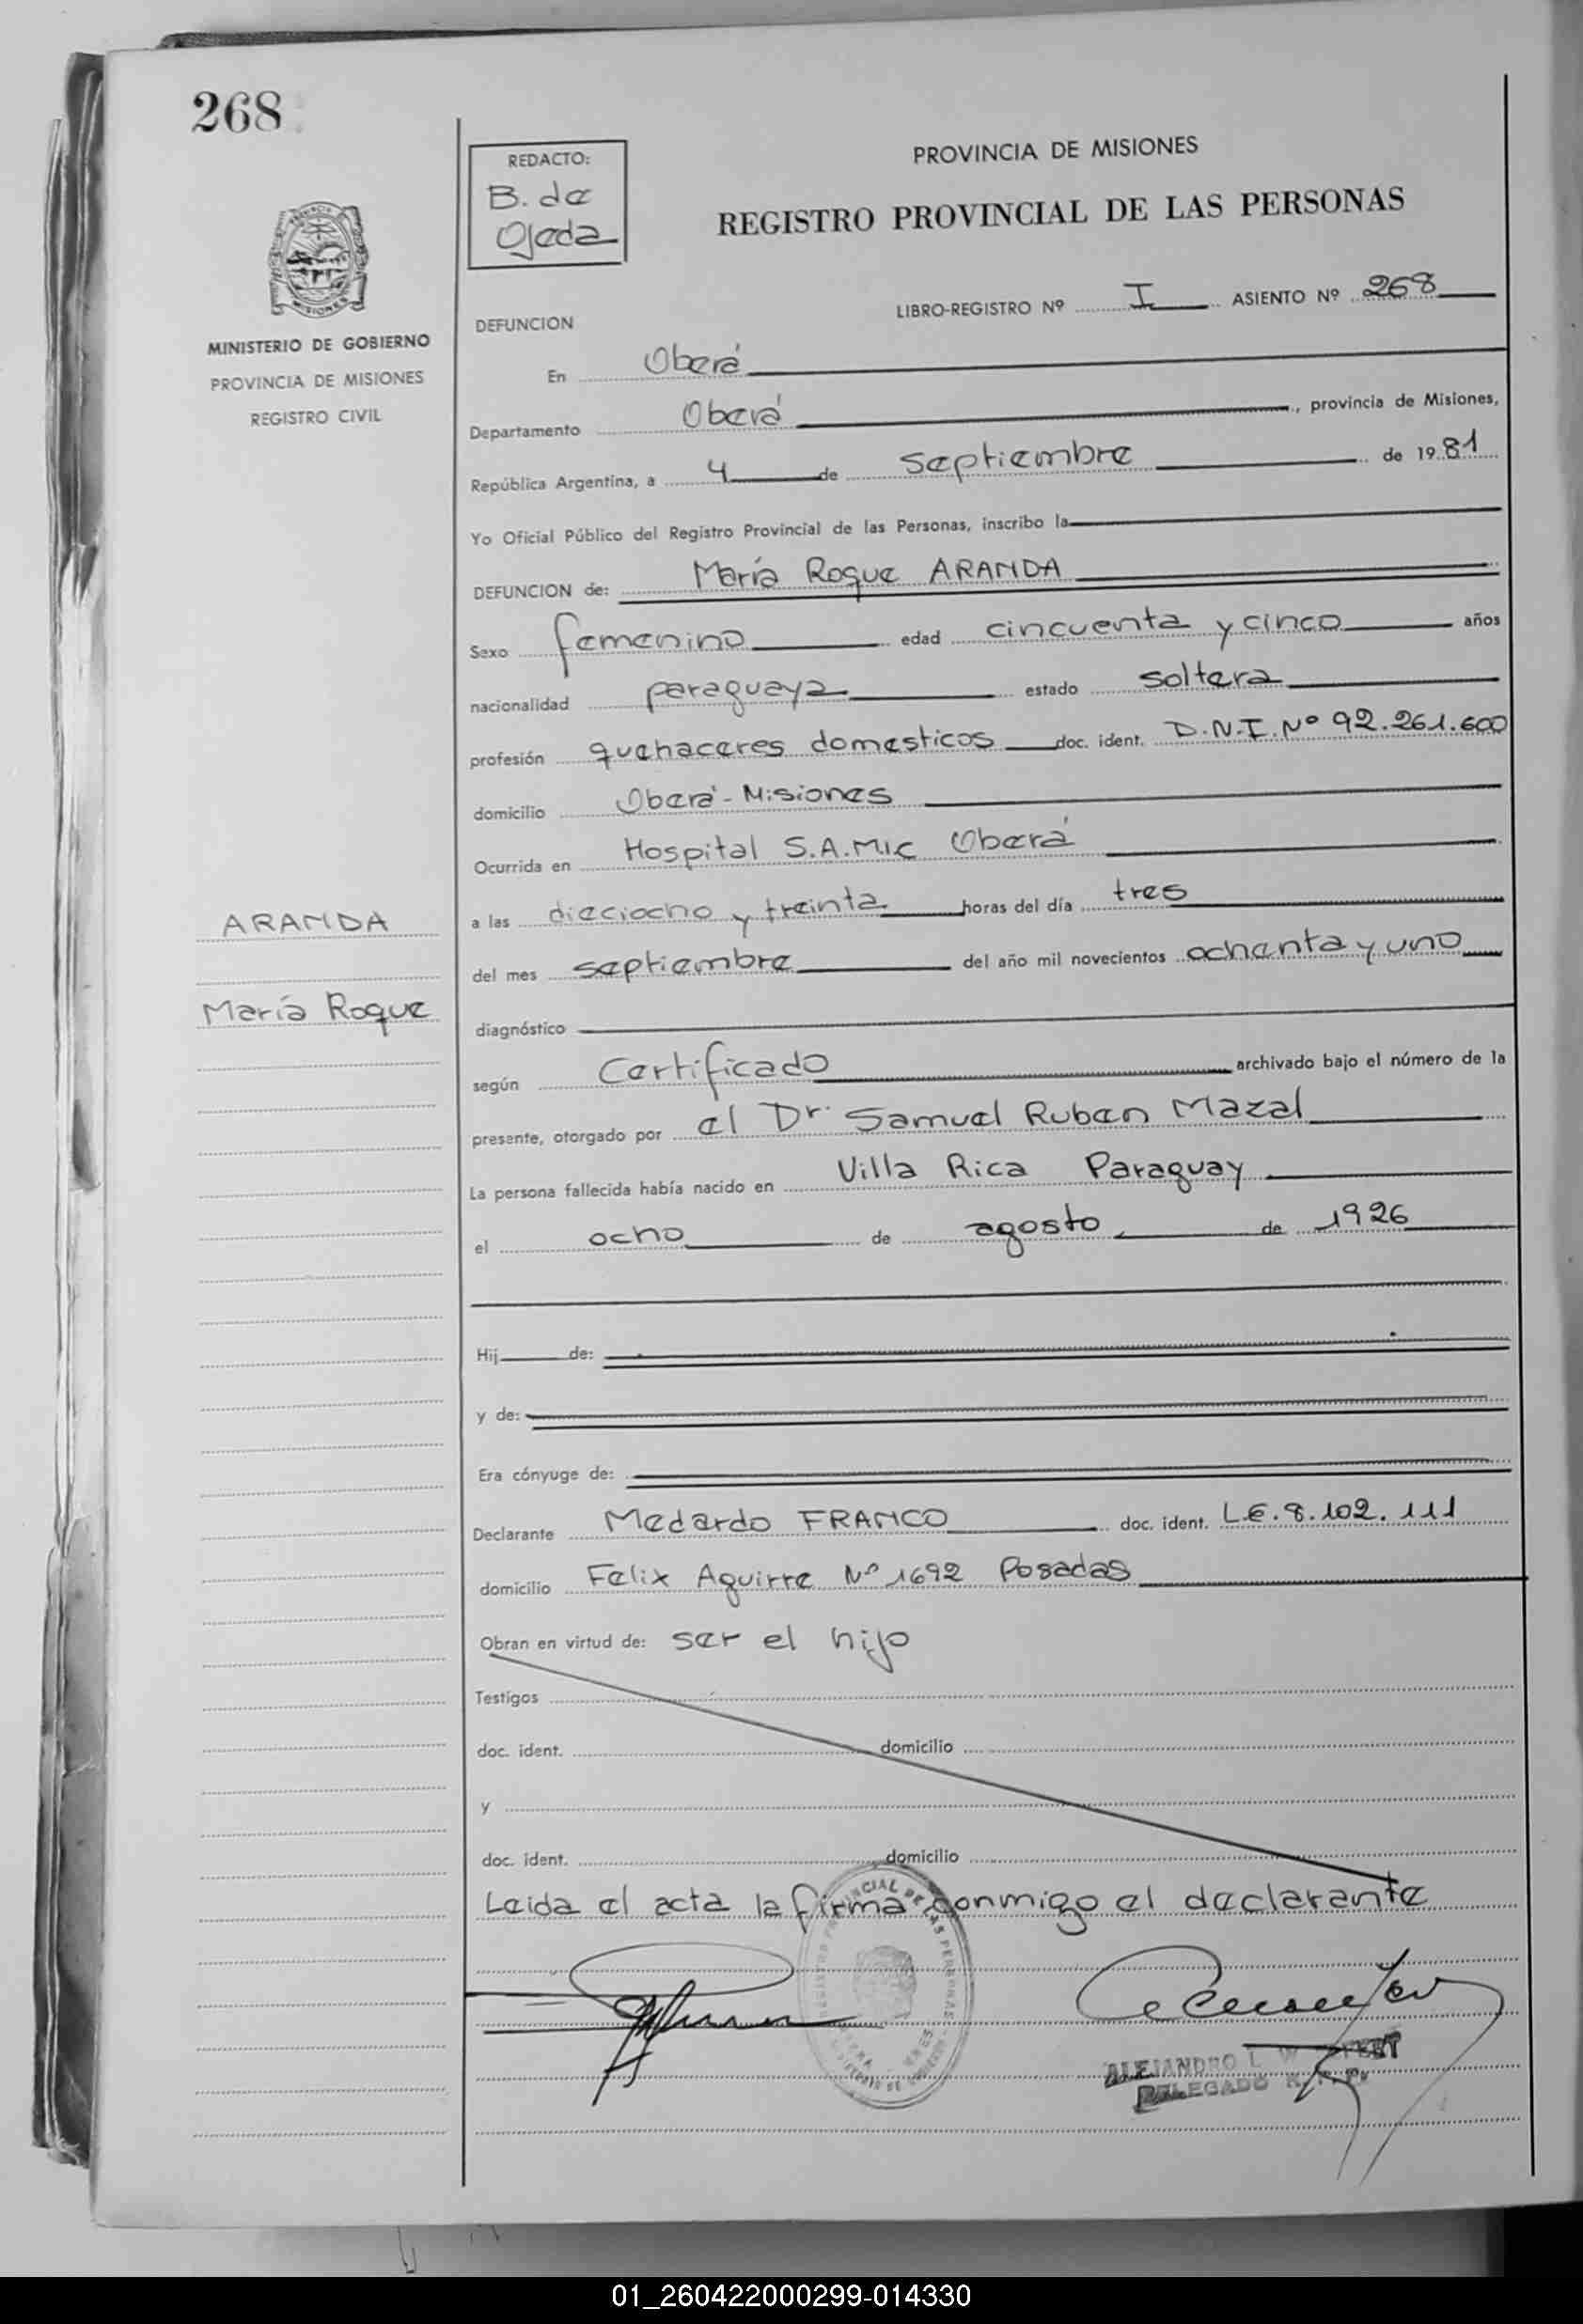 268
REDACTO:
B. de
Ojeda
PROVINCIA DE MISIONES
REGISTRO PROVINCIAL DE LAS PERSONAS
LIBRO-REGISTRO Nº I ASIENTO Nº 268
MINISTERIO DE GOBIERNO
PROVINCIA DE MISIONES
REGISTRO CIVIL
DEFUNCION
En Oberá
Departamento Oberá, provincia de Misiones,
República Argentina, a 4 de septiembre de 1981
Yo Oficial Público del Registro Provincial de las Personas, inscribo la
DEFUNCION de: María Roque ARANDA
Sexo femenino edad cincuenta y cinco años
nacionalidad paraguaya estado soltera
profesión quehaceres domesticos doc. ident. D.N.I. Nº 92.261.600
domicilio Oberá - Misiones
Ocurrida en Hospital S.A.Mic Oberá
ARANDA
María Roque
a las dieciocho y treinta horas del día tres
del mes septiembre del año mil novecientos ochenta y uno
diagnóstico
según Certificado archivado bajo el número de la
presente, otorgado por el Dr. Samuel Ruben Mazal
La persona fallecida había nacido en Villa Rica Paraguay
el ocho de agosto de 1926
Hij de:
y de:
Era cónyuge de:
Declarante Medardo FRANCO doc. ident. L.E. 8.102.111
domicilio Felix Aguirre Nº 1692 Posadas
Obran en virtud de: ser el hijo
Testigos
doc. ident. domicilio
y
doc. ident. domicilio
Leida el acta la firma conmigo el declarante
ALEJANDRO L.
DELEGADO
01_260422000299-014330